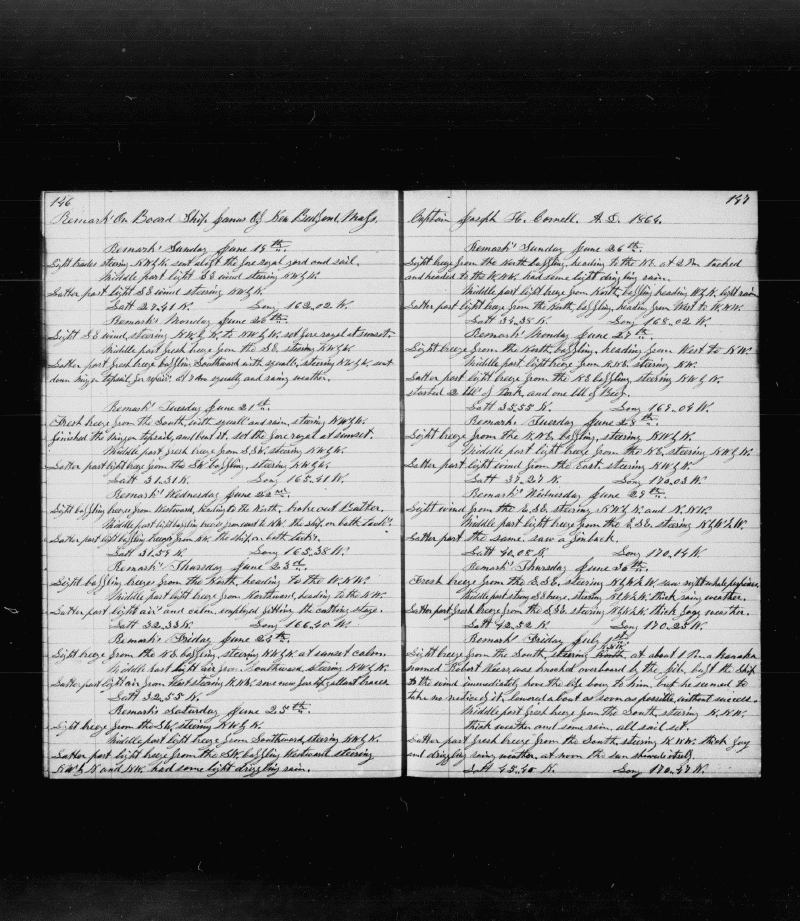 146
Remarks On Board Ship Janus Of New Bedford, Mass.
Remarks Sunday June 19th
Light trades steering N.W.by N. sent aloft the fore royal yard and sail.
Middle part light S.E wind steering NW by N.
Latter part light S.E wind steering NW by N.
Latt 27.41 N. Long 162.02 W.
Remarks Monday June 20th
Light S.E wind, steering N.W. by N. to NW by W. set fore royal at sunset.
Middle part fresh breeze from the S.E, steering NW by N.
Latter part fresh breeze baffling Southward with squalls, steering NW by N. sent
down mizen topsail for repairs, at 7 Am squally and rainy weather.
Remarks Tuesday June 21st
Fresh breeze from the South, with squalls and rain, steering NW by N.
finished the mizen topsail, and bent it. set the fore royal at sunset.
Middle part fresh breeze from S.SW, steering NW by N.
Latter part light breeze from the SW baffling, steering NW by N.
Latt 31.31 N. Long 165.41 W.
Remarks Wednesday June 22nd
Light baffling breeze from Westward, heading to the North, broke out Bather.
Middle part light baffling breeze from west to NW. the ship on both tacks.
Latter part light baffling breeze from NW. the ship on both tacks.
Latt 31.54 N. Long 165.38 W.
Remarks Thursday June 23rd
Light baffling breeze from the North, heading to the W.NW.
Middle part light breeze from Northward, heading to the NW.
Latter part light airs and calm. employed fitting the cutting stage.
Latt 32.33 N Long 166.40 W.
Remarks Friday June 24th
Light breeze from the N.E baffling, steering NW by N at sunset calm.
Middle part light air from Southward, steering NW by N.
Latter part light air from West steering N.NW. some new fore top gallant braces
Latt 32.55 N.
Remarks Saturday June 25th
Light breeze from the SW, steering NW by N.
Middle part light breeze from Southward, steering NW by N.
Latter part light breeze from the SW. baffling Westward steering
N.W by N and NW. had some light drizzling rain.
147
Captain Joseph H. Cornell. A.D. 1864.
Remarks Sunday June 26th
Light breeze from the North baffling, heading to the NE. at 2 Pm tacked
and headed to the W.NW. had some light drizzling rain.
Middle part light breeze from North, baffling heading W by N. light rain
Latter part light breeze from the North, baffling, heading from West to W.NW.
Latt 34.38 N. Long 168.02 W.
Remarks Monday June 27th
Light breeze from the North, baffling, heading from West to NW.
Middle part light breeze from N.NE. steering NW.
Latter part light breeze from the NE baffling, steering NW by N.
started 2 bbls of Pork, and one bbl of Beef.
Latt 35.55 N. Long 169.04 W.
Remarks Tuesday June 28th
Light breeze from the N.NE. baffling, steering NW by N.
Middle part light breeze from the NE. steering NW by N.
Latter part light wind from the East. steering NW by N.
Latt 37.27 N. Long 170.03 W.
Remarks Wednesday June 29th
Light wind from the E.SE, steering NW by N. and N.NW.
Middle part light breeze from the E.SE. steering N by W ½ W.
Latter part the same. saw a finback.
Latt 40.08 N. Long 170.14 W.
Remarks Thursday June 30th
Fresh breeze from the E.SE, steering N by W ½ W. saw right whale
Middle part strong S.E breeze, steering N by W ½ W. thick rainy weather.
Latter part fresh breeze from the E.SE. steering N by W ½ W. thick fogy weather.
Latt 42.52 N. Long 170.25 W.
Remarks Friday July 1st
N.NW
Light breeze from the South, steering North, at about 1 Pm a kanaka
named Robert was knocked overboard by the luft the Ship
to the wind immediately, hove the life buoy to him, but he seemed to
take no notice of it, lowered a boat as soon as possible, without success.
Middle part fresh breeze from the South, steering N.NW.
thick weather and some rain, all sail set.
Latter part fresh breeze from the South, steering N.NW. thick fogy
and drizzling rainy weather, at noon the sun shined out.
Latt 45.40 N. Long 170.47 W.